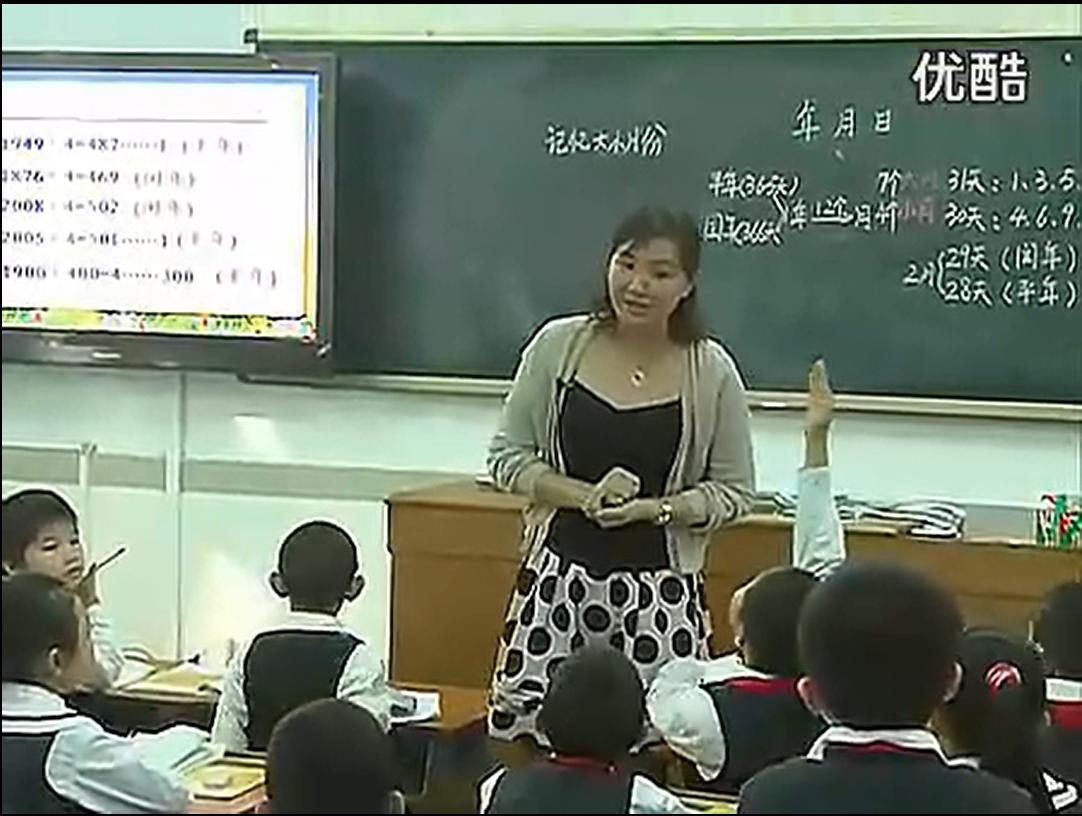 优酷
1949÷4=487……1 (平年)
1876÷4=469 (闰年)
2008÷4=502 (闰年)
2005÷4=501……1 (平年)
1900÷400=4……300 (平年)
记忆大小月份
年 月 日
平年(365天)
闰年(366天
年 12个 月
7个大月 31天：1.3.5.
4个小月 30天：4.6.9.
2月
29天（闰年）
28天（平年）